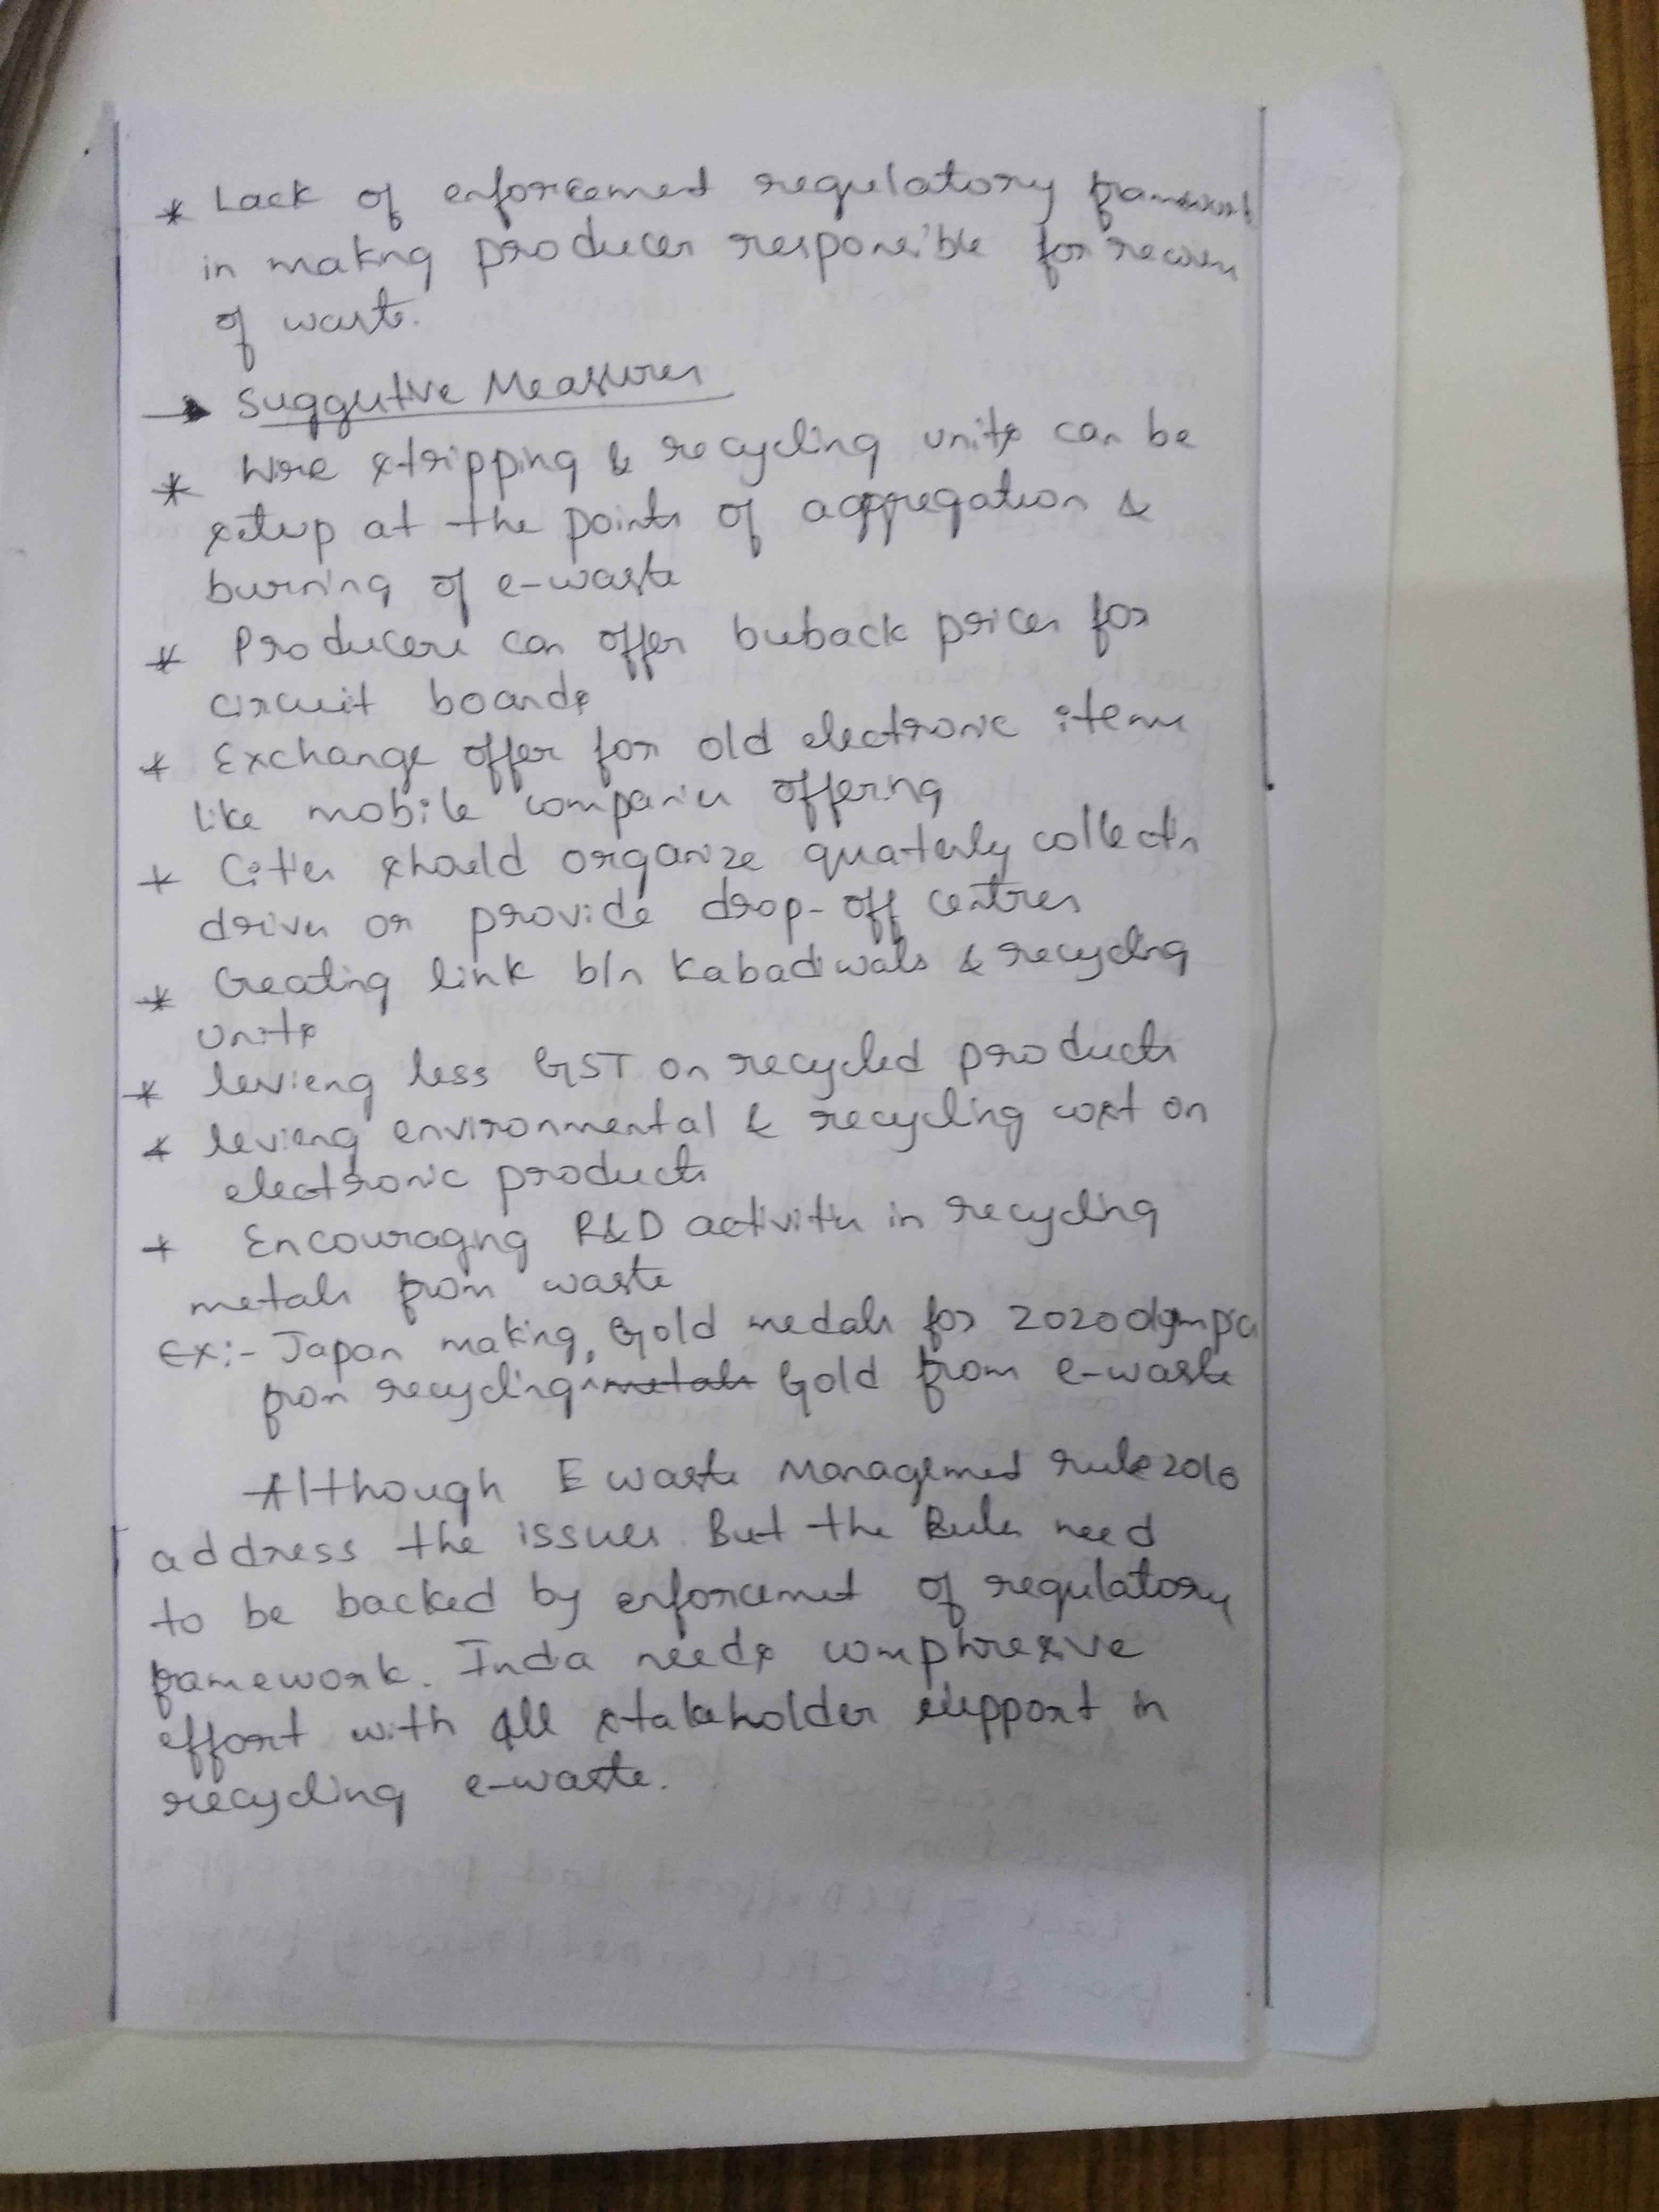 * Lack of enforcement regulatory framework
in making producer responsible for recover
of waste.
→ Suggutive Measures
* Wire stripping & recycling units can be
setup at the points of aggregation &
burning of e-waste
* Producers can offer buback prices for
circuit boards
* Exchange offer for old electronic items
like mobile companies offering
* Cities should organize quaterly collectn
drives or provide drop-off centres
* Creating link b/n Kabadiwals & recycling
units
* levieng less GST on recycled products
* levieng environmental & recycling cost on
electronic products
* Encouraging R&D activities in recycling
metals from waste
Ex:- Japan making, Gold medals for 2020 olympics
from recycling metals Gold from e-waste
Although E waste Management rule 2016
address the issues. But the Rules need
to be backed by enforcemet of regulatory
framework. India needs comphresive
effort with all stakeholder support in
recycling e-waste.